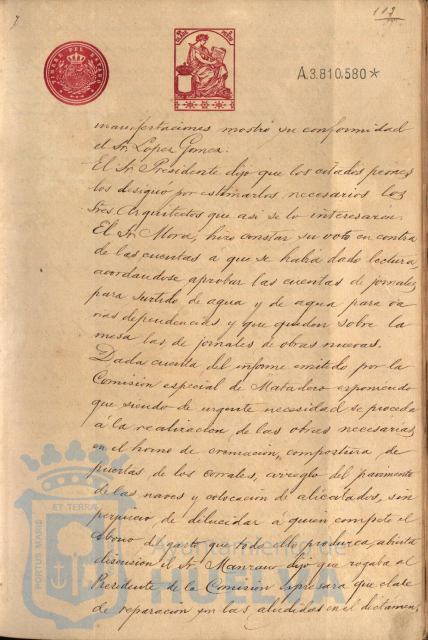 7
113
A.3.810.580*
manifestaciones mostró su conformidad
el Sr. Lopez Gomez.
El Sr. Presidente dijo que los citados peones
los designó por estimarlos necesarios los
Sres. Arquitectos que asi se lo interesaron.
El Sr. Mora, hizo constar su voto en contra
de las cuentas á que se habia dado lectura,
acordandose aprobar las cuentas de jornales
para surtido de agua y de agua para va
rias dependencias y que queden sobre la
mesa las de jornales de obras nuevas.
Dada cuenta del informe emitido por la
Comision especial de Matadero exponiendo
que siendo de urgente necesidad se proceda
á la realizacion de las obras necesarias
en el horno de cremacion, compostura de
puertas de los corrales, arreglo del pavimento
de las naves y colocacion de alicatados, sin
perjuicio de dilucidar á quien compete el
abono del gasto que todo ello produzca, abierta
discusion el Sr. Manzano dijo que rogaba al
Presidente de la Comision expresara que clase
de reparacion son las aludidas en el dictamen,
PORTUS MARIS ET TERRAE
Ayuntamiento de
HUELVA